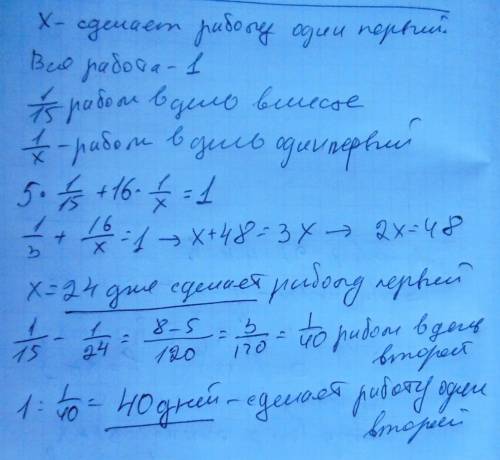 X - сделает работу один первый.
Вся работа - 1
1/15 работ в день вместе
1/x - работ в день один первый
5 · 1/15 + 16 · 1/x = 1
1/3 + 16/x = 1 → x + 48 = 3x → 2x = 48
x = 24 дня сделает работу первый
1/15 - 1/24 = 8-5/120 = 3/120 = 1/40 работ в день
второй
1 : 1/40 = 40 дней - сделает работу один
второй